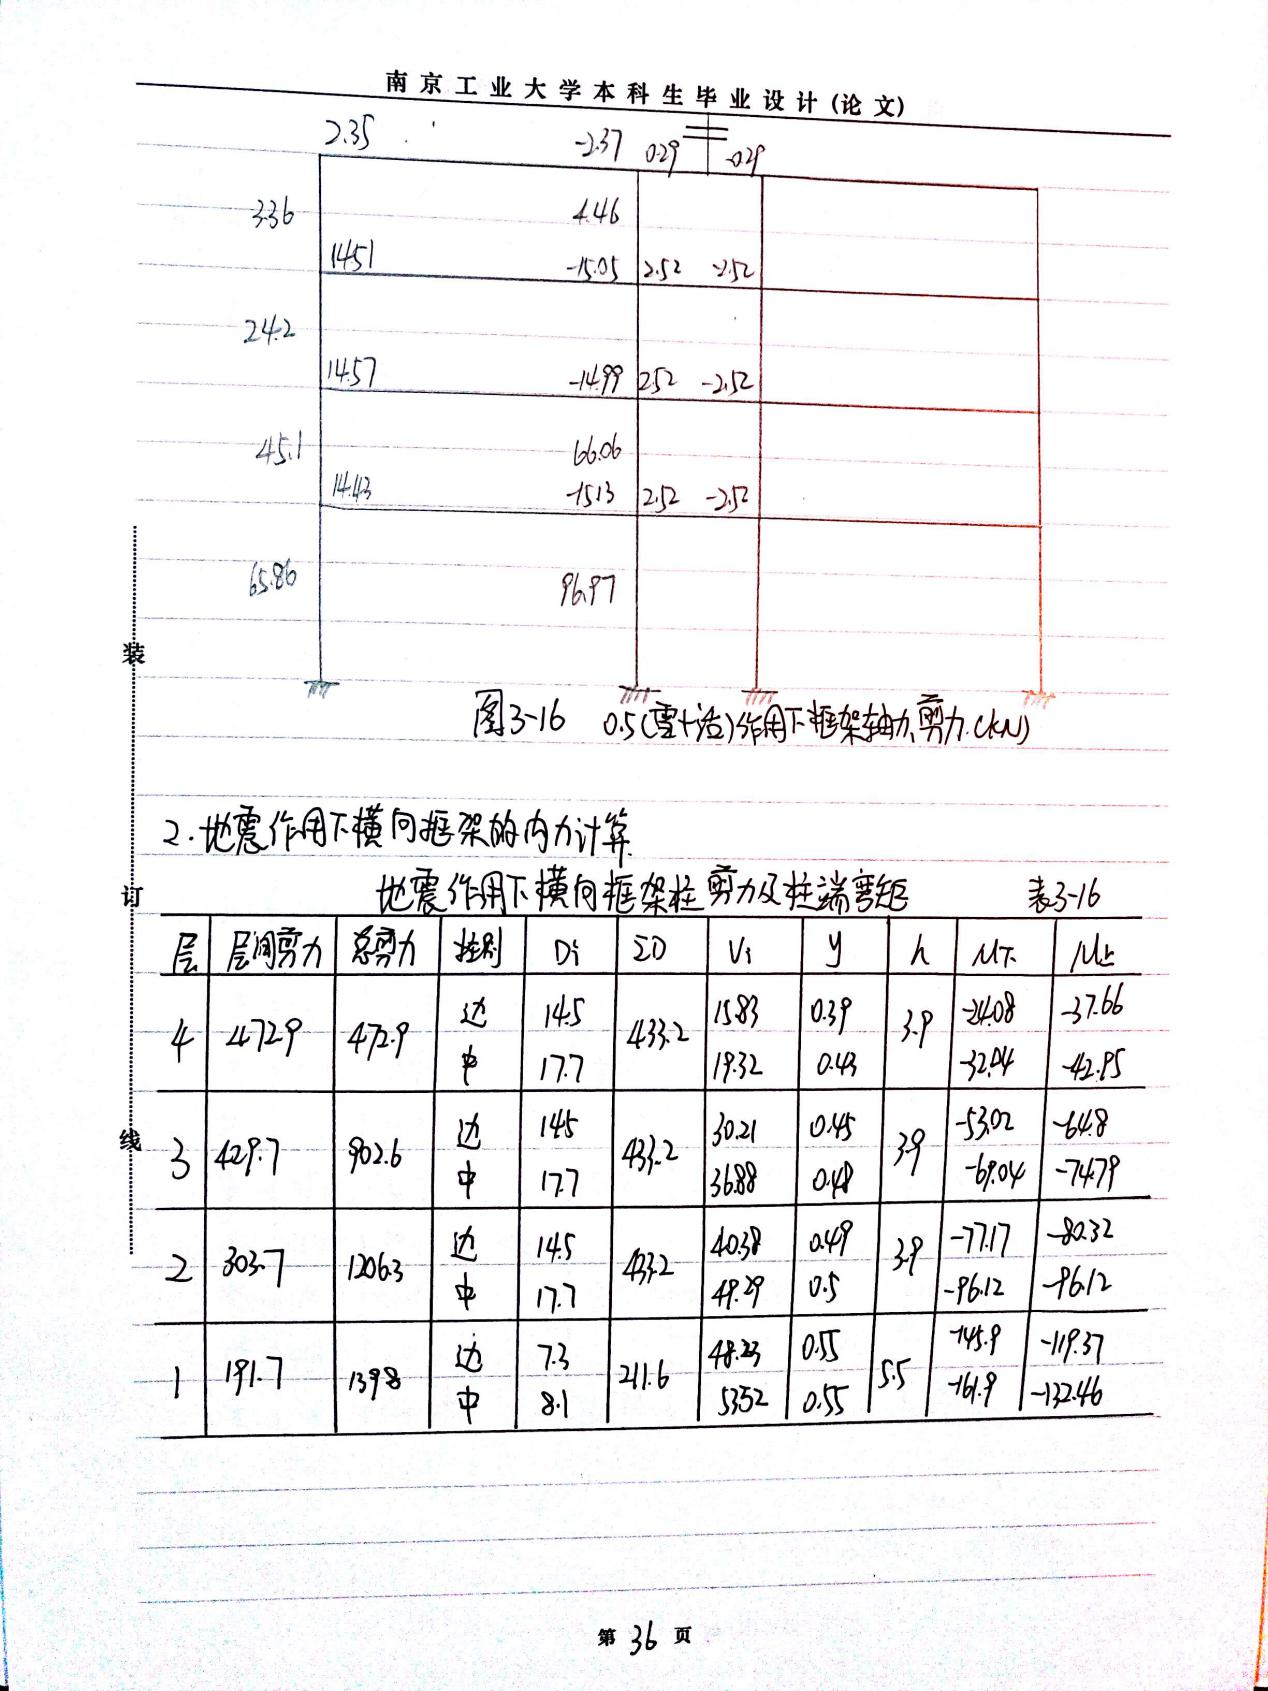 南京工业大学本科生毕业设计(论文)
2.35 -2.37 0.29 -0.29
3.36 4.46
14.51 -15.05 2.52 -2.52
24.2
14.57 -14.99 2.52 -2.52
45.1 66.06
14.43 -15.13 2.52 -2.52
65.86 96.97
图3-16 0.5(雪+活)作用下框架轴力、剪力.(kN)
2.地震作用下横向框架的内力计算.
地震作用下横向框架柱剪力及柱端弯矩 表3-16
层 层间剪力 总剪力 柱别 Di ΣD Vi y h M下 M上
4 472.9 472.9 边 14.5 433.2 15.83 0.39 3.9 -24.08 -37.66
中 17.7 19.32 0.43 -32.04 -42.95
3 429.7 902.6 边 14.5 433.2 30.21 0.45 3.9 -53.02 -64.8
中 17.7 36.88 0.48 -69.04 -74.79
2 303.7 1206.3 边 14.5 433.2 40.38 0.49 3.9 -77.17 -80.32
中 17.7 49.29 0.5 -96.12 -96.12
1 191.7 1398 边 7.3 211.6 48.23 0.55 5.5 -145.9 -119.37
中 8.1 53.52 0.55 -161.9 -132.46
装
订
线
第 36 页